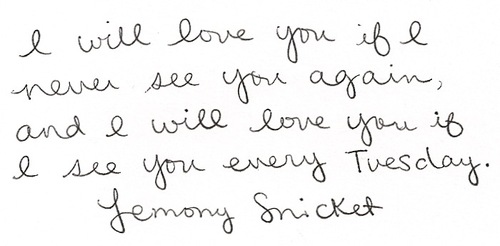 I will love you if I
never see you again,
and I will love you if
I see you every Tuesday.
Lemony Snicket